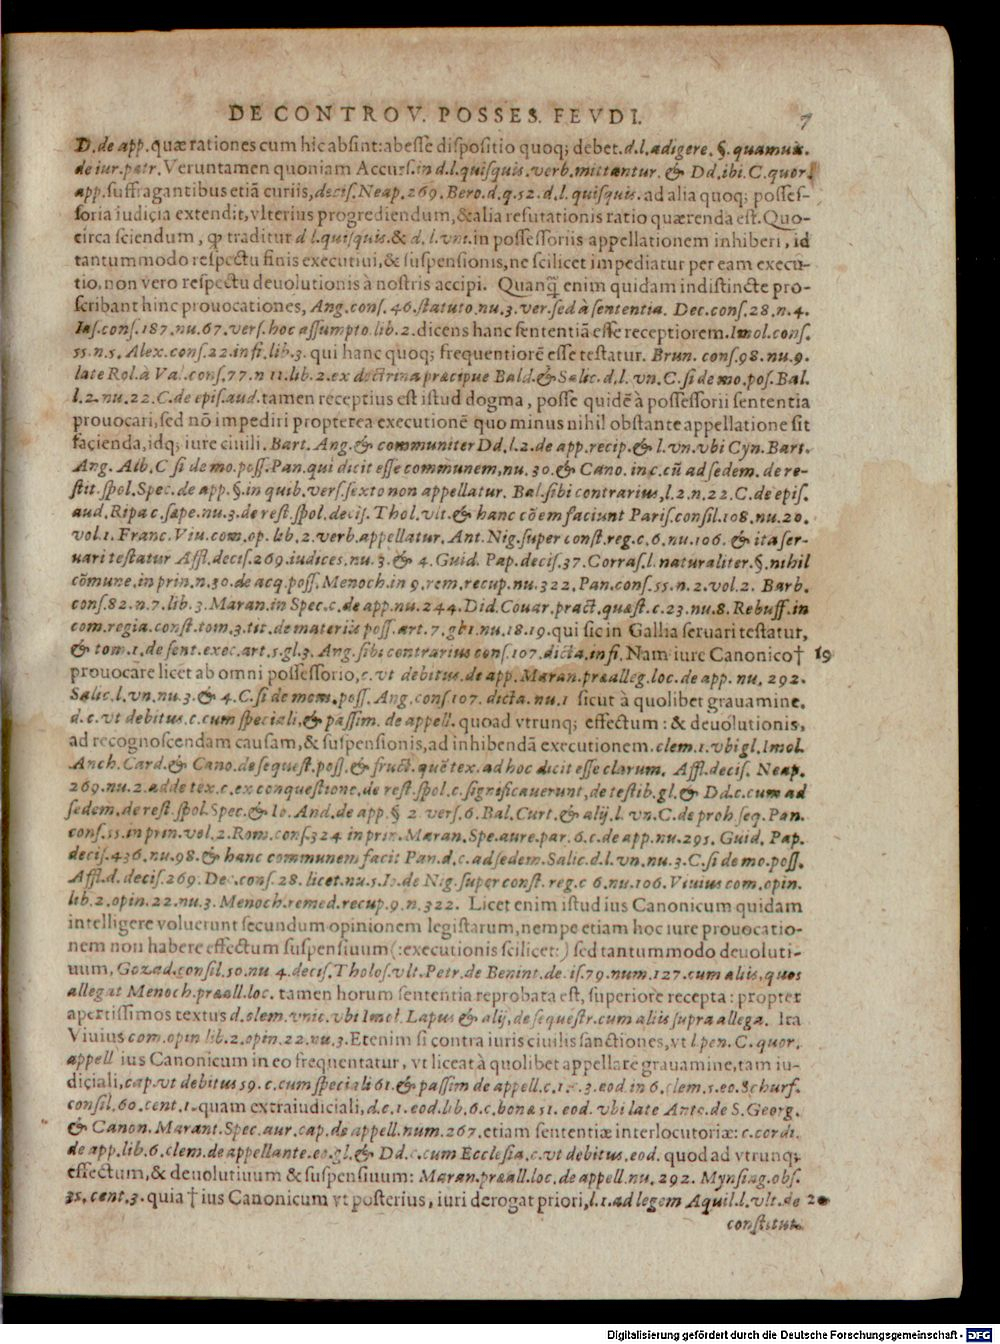 DE CONTROV. POSSES. FEVDI. 7
D. de app. quæ rationes cum hic absint: abesse dispositio quoq; debet. d.l. adigere. §. quamuis.
de iur. patr. Veruntamen quoniam Accurs. in d.l. quisquis. verb. mittantur. & Dd. ibi. C. quor.
app. suffragantibus etiã curiis, decis. Neap. 269. Bero. d. q. 52. d. l. quisquis. ad alia quoq; posses-
soria iudicia extendit, vlterius progrediendum, & alia refutationis ratio quærenda est. Quo-
circa sciendum, ꝙ traditur d l. quisquis. & d. l. vni. in possessoriis appellationem inhiberi, id
tantummodo respectu finis executiui, & suspensionis, ne scilicet impediatur per eam execu-
tio, non vero respectu deuolutionis à nostris accipi. Quanq̃ enim quidam indistincte pro-
scribant hinc prouocationes, Ang. cons. 46. statuto nu. 3. ver. sed à sententia. Dec. cons. 28. n. 4.
Ias. cons. 187. nu. 67. vers. hoc assumpto. lib. 2. dicens hanc sententiã esse receptiorem. Imol. cons.
55. n. 5. Alex. cons. 22. in fi. lib. 3. qui hanc quoq; frequentiorẽ esse testatur. Brun. cons. 98. nu. 9.
late Rol. à Val. cons. 77. n 11. lib. 2. ex doctrina præcipue Bald. & Salic. d. l. vn. C. si de mo. pos. Bal.
l. 2. nu. 22. C. de epis. aud. tamen receptius est istud dogma, posse quidẽ à possessorii sententia
prouocari, sed nõ impediri propterea executionẽ quo minus nihil obstante appellatione sit
facienda, idq; iure ciuili. Bart. Ang. & communiter Dd. l. 2. de app. recip. & l. vn. vbi Cyn. Bart.
Ang. Alb. C si de mo. poss. Pan. qui dicit esse communem, nu. 30. & Cano. in c. cũ ad sedem. de re-
stit. spol. Spec. de app. §. in quib. vers. sexto non appellatur. Bal. sibi contrarius, l. 2. n. 22. C. de epis.
aud. Ripa c. sæpe. nu. 3. de rest. spol. decis. Thol. vlt. & hanc cõem faciunt Paris. consil. 108. nu. 20.
vol. 1. Franc. Viu. com. op. lib. 2. verb. appellatur. Ant. Nig. super const. reg. c. 6. nu. 106. & ita ser-
uari testatur Affl. decis. 269. iudices. nu. 3. & 4. Guid. Pap. decis. 37. Corras. l. naturaliter. §. nihil
cõmune. in prin. n. 30. de acq. poss. Menoch. in 9. rem. recup. nu. 322. Pan. cons. 55. n. 2. vol. 2. Barb.
cons. 82. n. 7. lib. 3. Maran. in Spec. c. de app. nu. 244. Did. Couar. pract. quæst. c. 23. nu. 8. Rebuff. in
com. regia. const. tom. 3. tit. de materiis poss. art. 7. gl. 1. nu. 18. 19. qui sic in Gallia seruari testatur,
& tom. 1. de sent. exec. art. 5. gl. 3. Ang. sibi contrarius cons. 107. dicta. in fi. Nam iure Canonico † 19
prouocare licet ab omni possessorio, c. vt debitus. de app. Maran. præalleg. loc. de app. nu. 292.
Salic. l. vn. nu. 3. & 4. C. si de mom. poss. Ang. cons. 107. dicta. nu. 1 sicut à quolibet grauamine.
d. c. vt debitus. c. cum speciali, & passim. de appell. quoad vtrunq; effectum: & deuolutionis,
ad recognoscendam causam, & suspensionis, ad inhibendã executionem. clem. 1. vbi gl. Imol.
Anch. Card. & Cano. de sequest. poss. & fruct. quẽ tex. ad hoc dicit esse clarum. Affl. decis. Neap.
269. nu. 2. adde tex. c. ex conquestione, de rest. spol. c. significauerunt, de testib. gl. & Dd. c. cum ad
sedem. de rest. spol. Spec. & Io. And. de app. § 2. vers. 6. Bal. Curt. & alij. l. vn. C. de proh. seq. Pan.
cons. 55. in prin. vol. 2. Rom. cons. 324 in prin. Maran. Spe. aure. par. 6. c. de app. nu. 295. Guid. Pap.
decis. 436. nu. 98. & hanc communem facit Pan. d. c. ad sedem. Salic. d. l. vn. nu. 3. C. si de mo. poss.
Affl. d. decis. 269. Dec. cons. 28. licet. nu. 5. Io. de Nig. super const. reg. c 6. nu. 106. Viuius com. opin.
lib. 2. opin. 22. nu. 3. Menoch. remed. recup. 9. n. 322. Licet enim istud ius Canonicum quidam
intelligere voluerunt secundum opinionem legistarum, nempe etiam hoc iure prouocatio-
nem non habere effectum suspensiuum (: executionis scilicet: ) sed tantummodo deuoluti-
uum, Gozad. consil. 50. nu 4. decis. Tholos. vlt. Petr. de Benint. decis. 79. num. 127. cum aliis, quos
allegat Menoch. præall. loc. tamen horum sententia reprobata est, superiore recepta: propter
apertissimos textus d. clem. vnic. vbi Imol. Lapus & alij, de sequestr. cum aliis supra allega. Ita
Viuius com. opin lib. 2. opin. 22. nu. 3. Etenim si contra iuris ciuilis sanctiones, vt l pen. C. quor.
appell ius Canonicum in eo frequentatur, vt liceat à quolibet appellare grauamine, tam iu-
diciali, cap. vt debitus 59. c. cum speciali 61. & passim de appell. c. 1. c. 3. eod. in 6. clem. 5. eo. Schurf.
consil. 60. cent. 1. quam extraiudiciali, d. c. 1. eod. lib. 6. c. bonæ 51. eod. vbi late Anto. de S. Georg.
& Canon. Marant. Spec. aur. cap. de appell. num. 267. etiam sententiæ interlocutoriæ: c. cordi.
de app. lib. 6. clem. de appellante. eo. gl. & Dd. c. cum Ecclesia, c. vt debitus. eod. quod ad vtrunq;
effectum, & deuolutiuum & suspensiuum: Maran. præall. loc. de appell. nu. 292. Mynsing. obs.
35. cent. 3. quia † ius Canonicum vt posterius, iuri derogat priori, l. 1. ad legem Aquil. l. vlt. de 20
constitut.
Digitalisierung gefördert durch die Deutsche Forschungsgemeinschaft - DFG